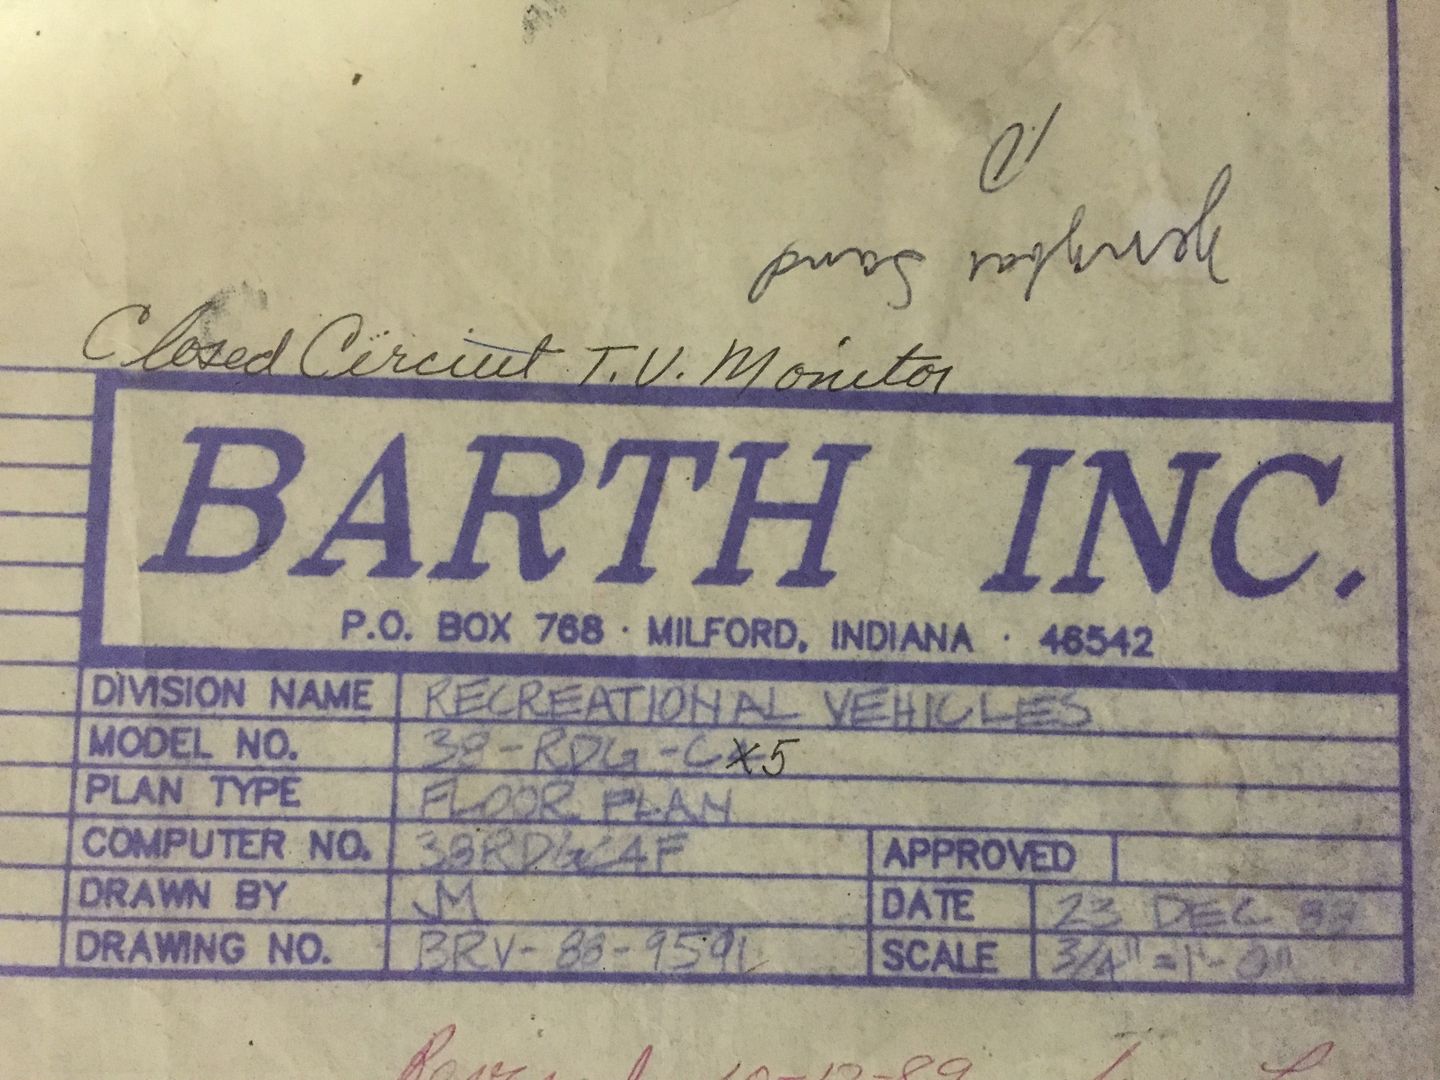 Sand
Closed Circiut T.V. Monitor
BARTH INC.
P.O. BOX 768 · MILFORD, INDIANA · 46542
DIVISION NAME RECREATIONAL VEHICLES
MODEL NO. 38-RDG-CX5
PLAN TYPE FLOOR PLAN
COMPUTER NO. 38RDGC4F APPROVED
DRAWN BY JM DATE 23 DEC 88
DRAWING NO. BRV-88-9591 SCALE 3/4"=1'-0"
Revised 10-12-89